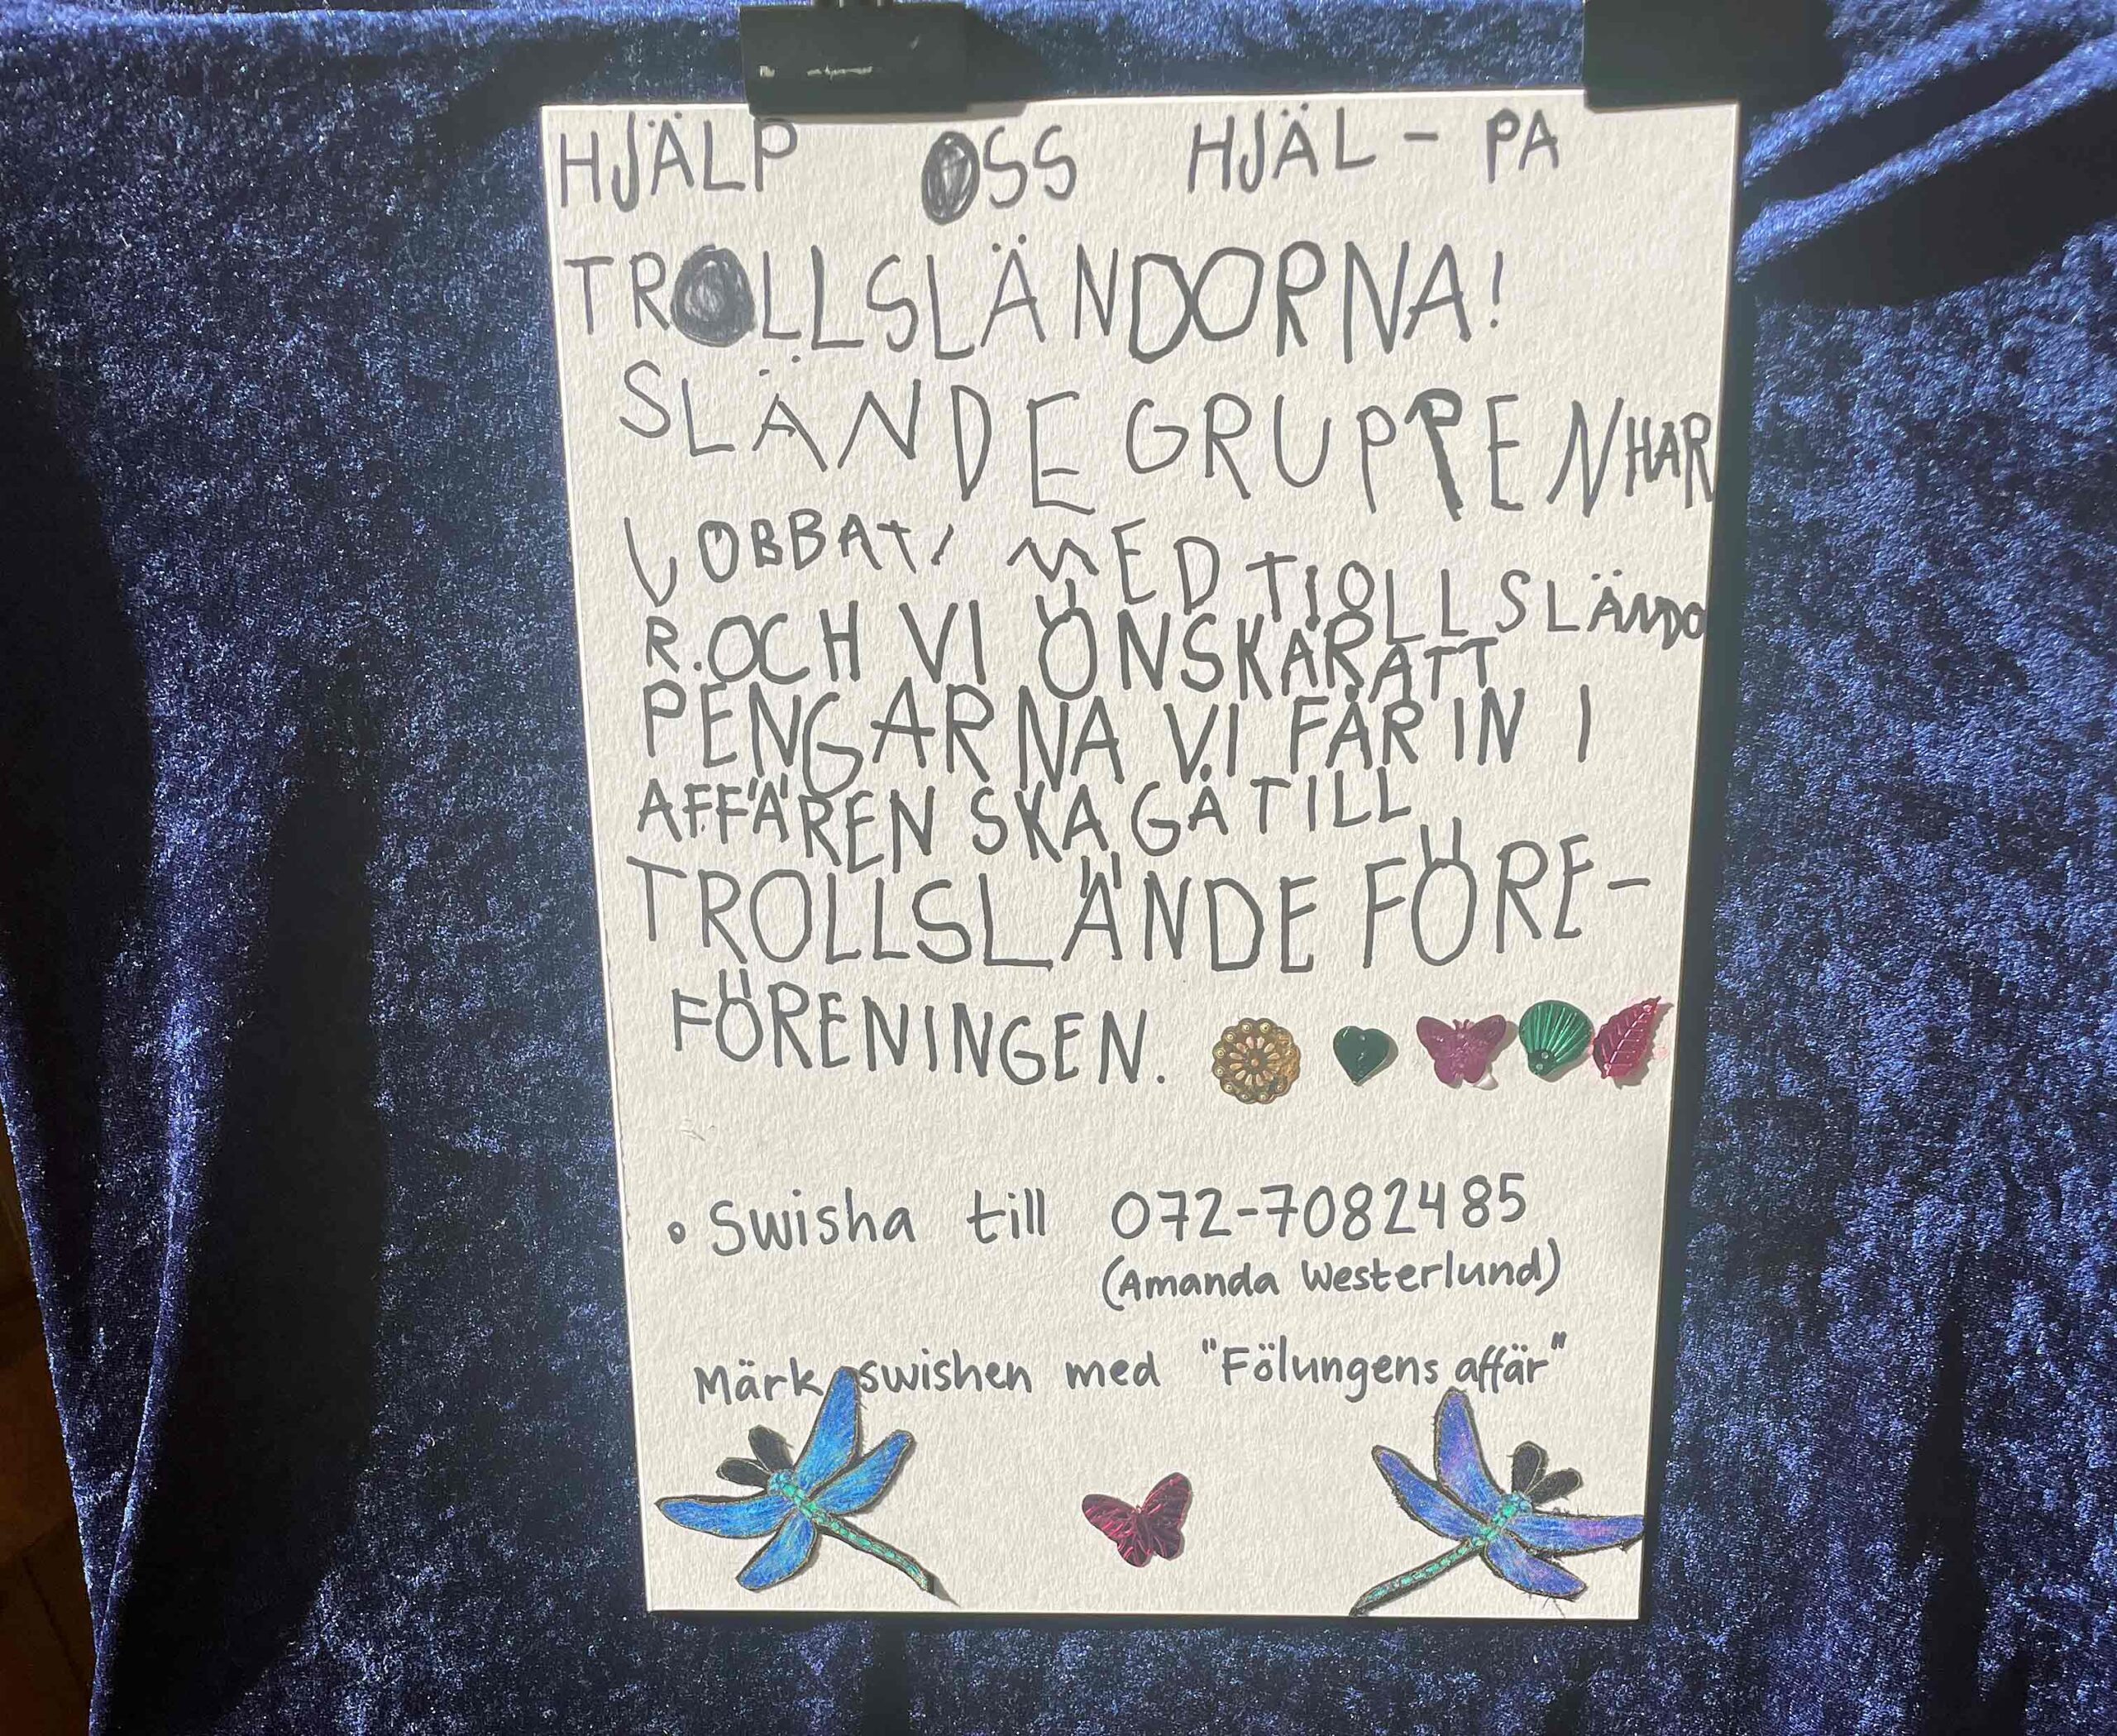 HJÄLP OSS HJÄL - PA
TROLLSLÄNDORNA!
SLÄNDEGRUPPEN HAR
JOBBAT MED TIOLLSLÄNDO
R. OCH VI ÖNSKAR ATT
PENGARNA VI FÅR IN I
AFFÄREN SKA GÅ TILL
TROLLSLÄNDE FÖRE-
FÖRENINGEN.
• Swisha till 072-7082485
(Amanda Westerlund)
Märk swishen med "Fölungens affär"